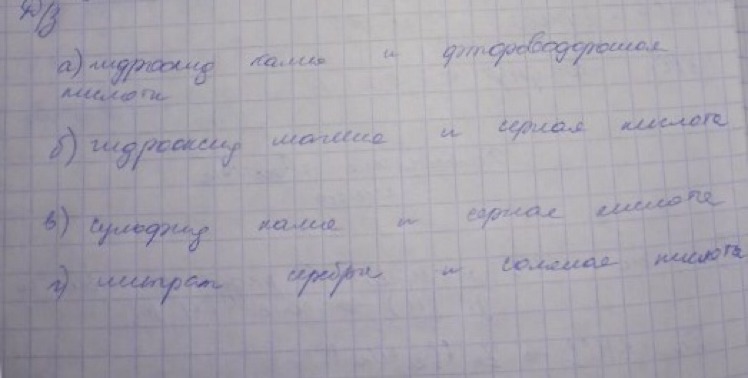 Д/з
а) гидроксид калия и фтороводородная
кислота
б) гидроксид магния и серная кислота
в) сульфид калия и серная кислота
г) нитрат серебра и соляная кислота